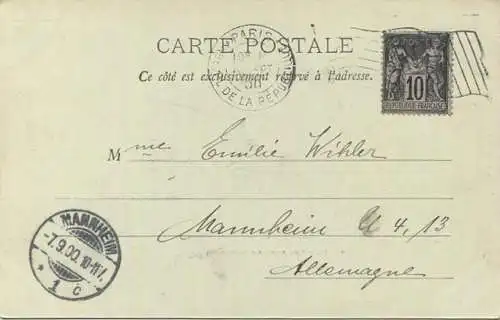 PARIS
PL. DE LA RÉPUBLIQUE
CARTE POSTALE
Ce côté est exclusivement réservé à l'adresse.
10
RÉPUBLIQUE FRANÇAISE
Mme Emilie Wihler
Mannheim U 4, 13
Allemagne
MANNHEIM
-7.9.00. 10-11V.
* 1 c